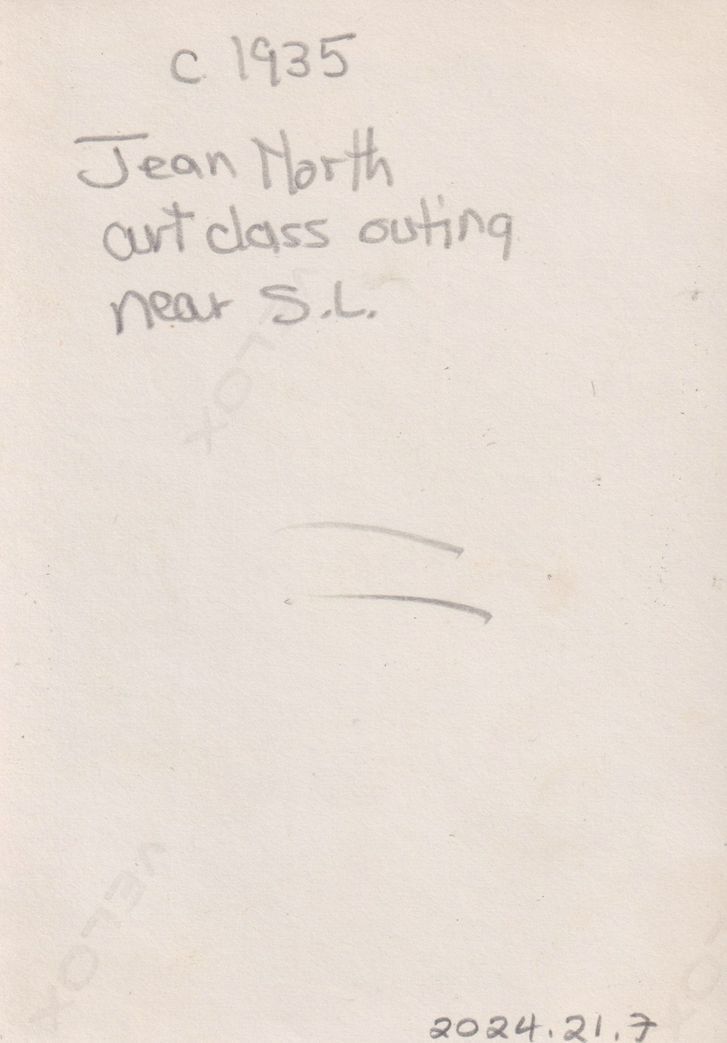 c 1935
Jean North
art class outing
near S.L.
VELOX
VELOX
2024.21.7